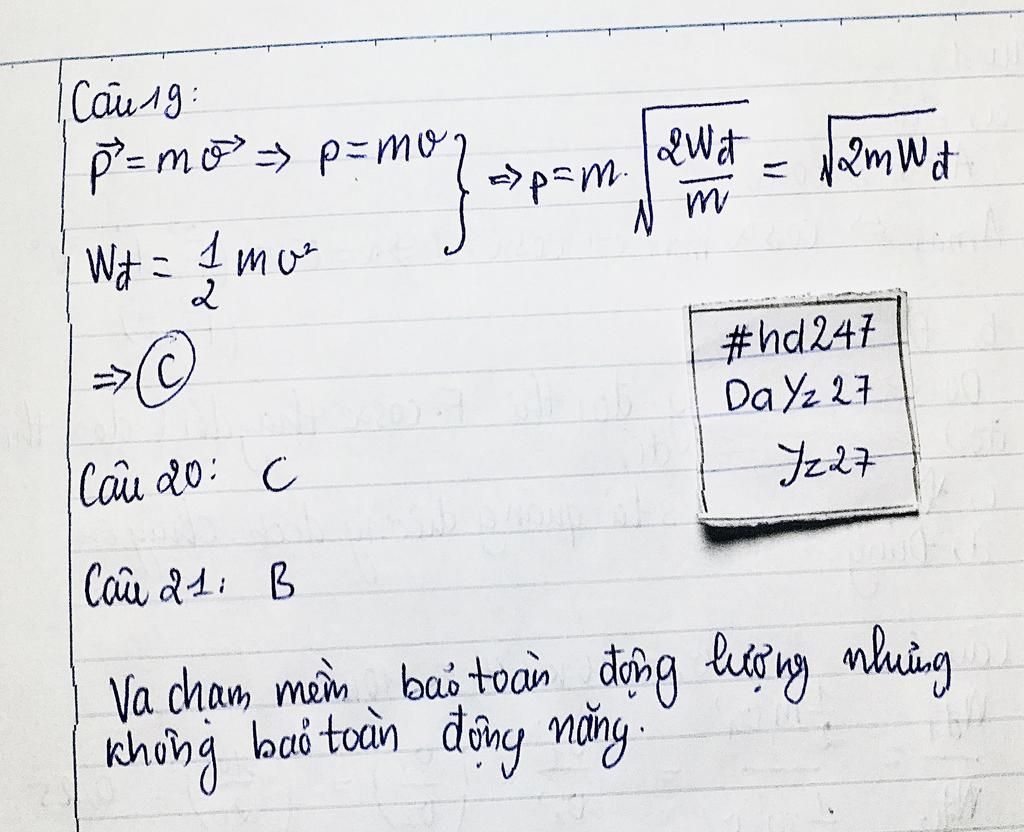 Câu 19:
p⃗ = mv⃗ => p = mv } => p = m. √(2Wđ/m) = √(2mWđ)
Wđ = 1/2 mv²
=> C
#hd247
DaYz27
Yz27
Câu 20: C
Câu 21: B
Va chạm mềm bảo toàn động lượng nhưng
không bảo toàn động năng.